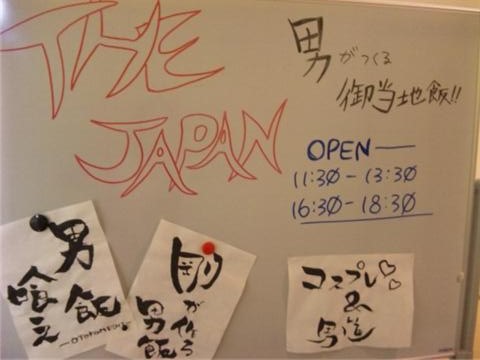 THE
JAPAN
男がつくる
御当地飯!!
OPEN
11:30-13:30
16:30-18:30
男飯
喰え
OTOKOMESHI
剛が作る
男飯
コスプレ♡♡
&
男道